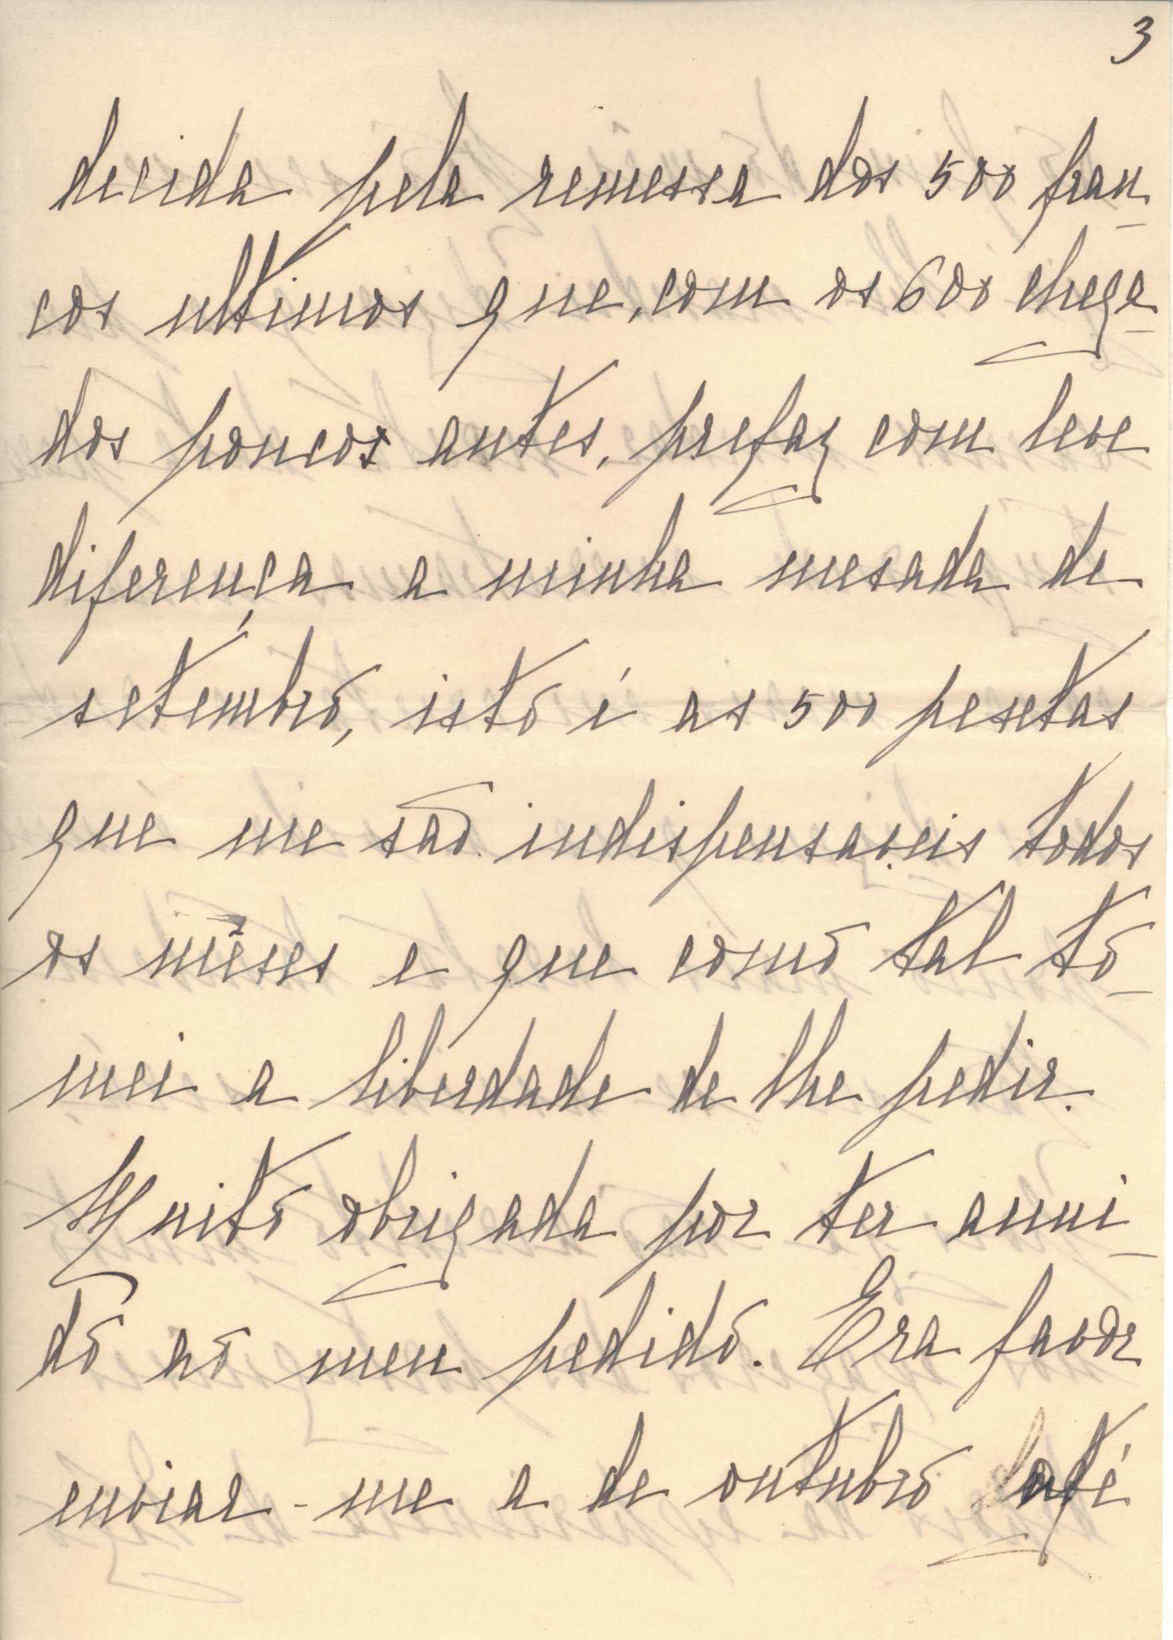 3
decida pela remessa dos 500 fran-
cos ultimos que, com os 600 chega-
dos poucos antes, prefaz com leve
diferença a minha mesada de
setembro, isto é as 500 pesetas
que me são indispensaveis todos
os mêses e que como tal to-
mei a liberdade de lhe pedir.
Muito obrigada por ter anui-
do ao meu pedido. Era favor
enviar-me a de outubro até